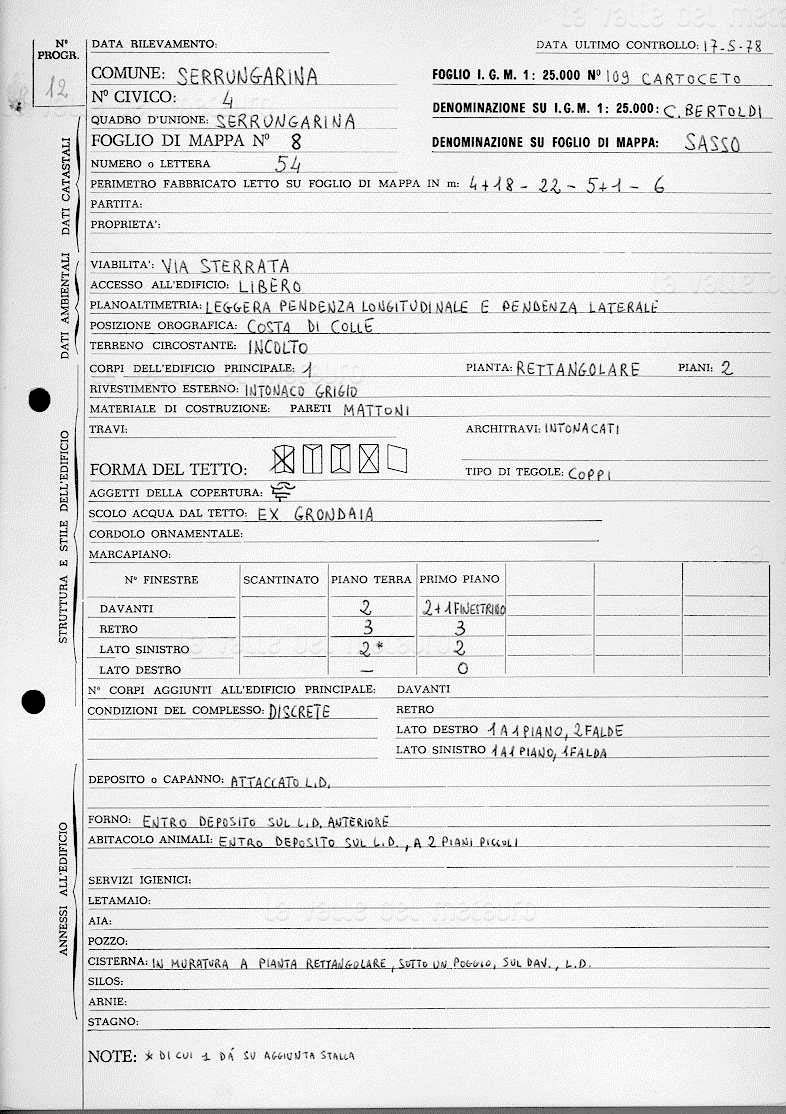 la valle del metauro
N° PROGR. 12
DATA RILEVAMENTO: DATA ULTIMO CONTROLLO: 17-5-78
COMUNE: SERRUNGARINA FOGLIO I.G.M. 1: 25.000 N° 109 CARTOCETO
N° CIVICO: 4 DENOMINAZIONE SU I.G.M. 1: 25.000: C. BERTOLDI
QUADRO D'UNIONE: SERRUNGARINA
FOGLIO DI MAPPA N° 8 DENOMINAZIONE SU FOGLIO DI MAPPA: SASSO
NUMERO o LETTERA 54
PERIMETRO FABBRICATO LETTO SU FOGLIO DI MAPPA IN m: 4+18-22-5+1-6
PARTITA:
PROPRIETA':
DATI CATASTALI
VIABILITA': VIA STERRATA
ACCESSO ALL'EDIFICIO: LIBERO
PLANOALTIMETRIA: LEGGERA PENDENZA LONGITUDINALE E PENDENZA LATERALE
POSIZIONE OROGRAFICA: COSTA DI COLLE
TERRENO CIRCOSTANTE: INCOLTO
DATI AMBIENTALI
CORPI DELL'EDIFICIO PRINCIPALE: 1 PIANTA: RETTANGOLARE PIANI: 2
RIVESTIMENTO ESTERNO: INTONACO GRIGIO
MATERIALE DI COSTRUZIONE: PARETI MATTONI
TRAVI: ARCHITRAVI: INTONACATI
FORMA DEL TETTO: TIPO DI TEGOLE: COPPI
AGGETTI DELLA COPERTURA:
SCOLO ACQUA DAL TETTO: EX GRONDAIA
CORDOLO ORNAMENTALE:
MARCAPIANO:
N° FINESTRE SCANTINATO PIANO TERRA PRIMO PIANO
DAVANTI 2 2+1 FINESTRINO
RETRO 3 3
LATO SINISTRO 2* 2
LATO DESTRO – 0
STRUTTURA E STILE DELL'EDIFICIO
N° CORPI AGGIUNTI ALL'EDIFICIO PRINCIPALE: DAVANTI
CONDIZIONI DEL COMPLESSO: DISCRETE RETRO
LATO DESTRO 1 A 1 PIANO, 2 FALDE
LATO SINISTRO 1 A 1 PIANO, 1 FALDA
DEPOSITO o CAPANNO: ATTACCATO L.D.
FORNO: ENTRO DEPOSITO SUL L.D. ANTERIORE
ABITACOLO ANIMALI: ENTRO DEPOSITO SUL L.D., A 2 PIANI PICCOLI
SERVIZI IGIENICI:
LETAMAIO:
la valle del metauro
AIA:
POZZO:
CISTERNA: IN MURATURA A PIANTA RETTANGOLARE, SOTTO UN POGGIO, SUL DAV., L.D.
SILOS:
ARNIE:
STAGNO:
ANNESSI ALL'EDIFICIO
NOTE: * DI CUI 1 DÀ SU AGGIUNTA STALLA